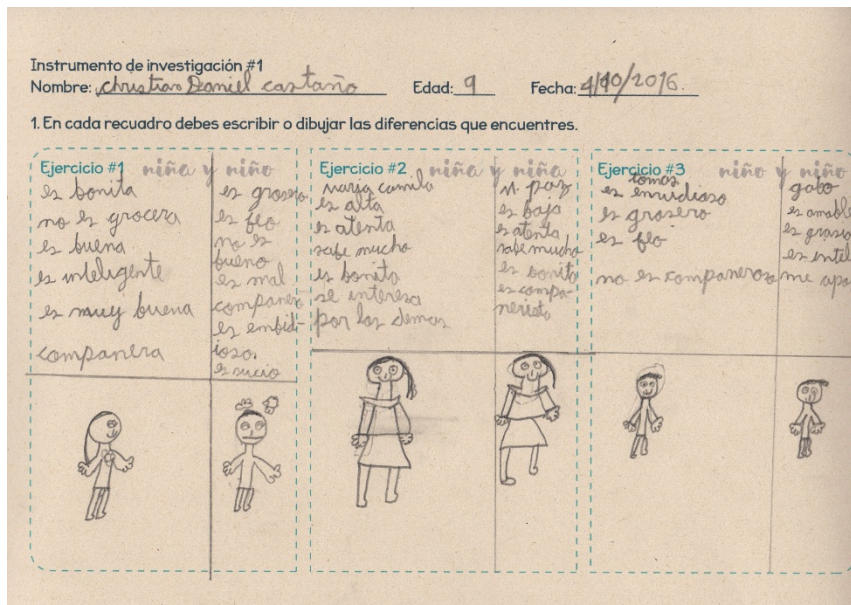 Instrumento de investigación #1
Nombre: Christian Daniel castaño Edad: 9 Fecha: 4/10/2016.
1. En cada recuadro debes escribir o dibujar las diferencias que encuentres.
Ejercicio #1 niña y niño
es bonita
no es grocera
es buena
es inteligente
es muy buena
companera
es grosero
es feo
no es
bueno
es mal
companero
es embid-
ioso.
es sucio
Ejercicio #2 niña y niña
maria camila
es alta
es atenta
sabe mucho
es bonita
se interesa
por los demas
paz
es baja
es atenta
sabe mucho
es bonita
es compa-
nerista
Ejercicio #3 niño y niño
tomas
es envidioso
es grosero
es feo
no es companeroso
gabo
es amable
es
es
me